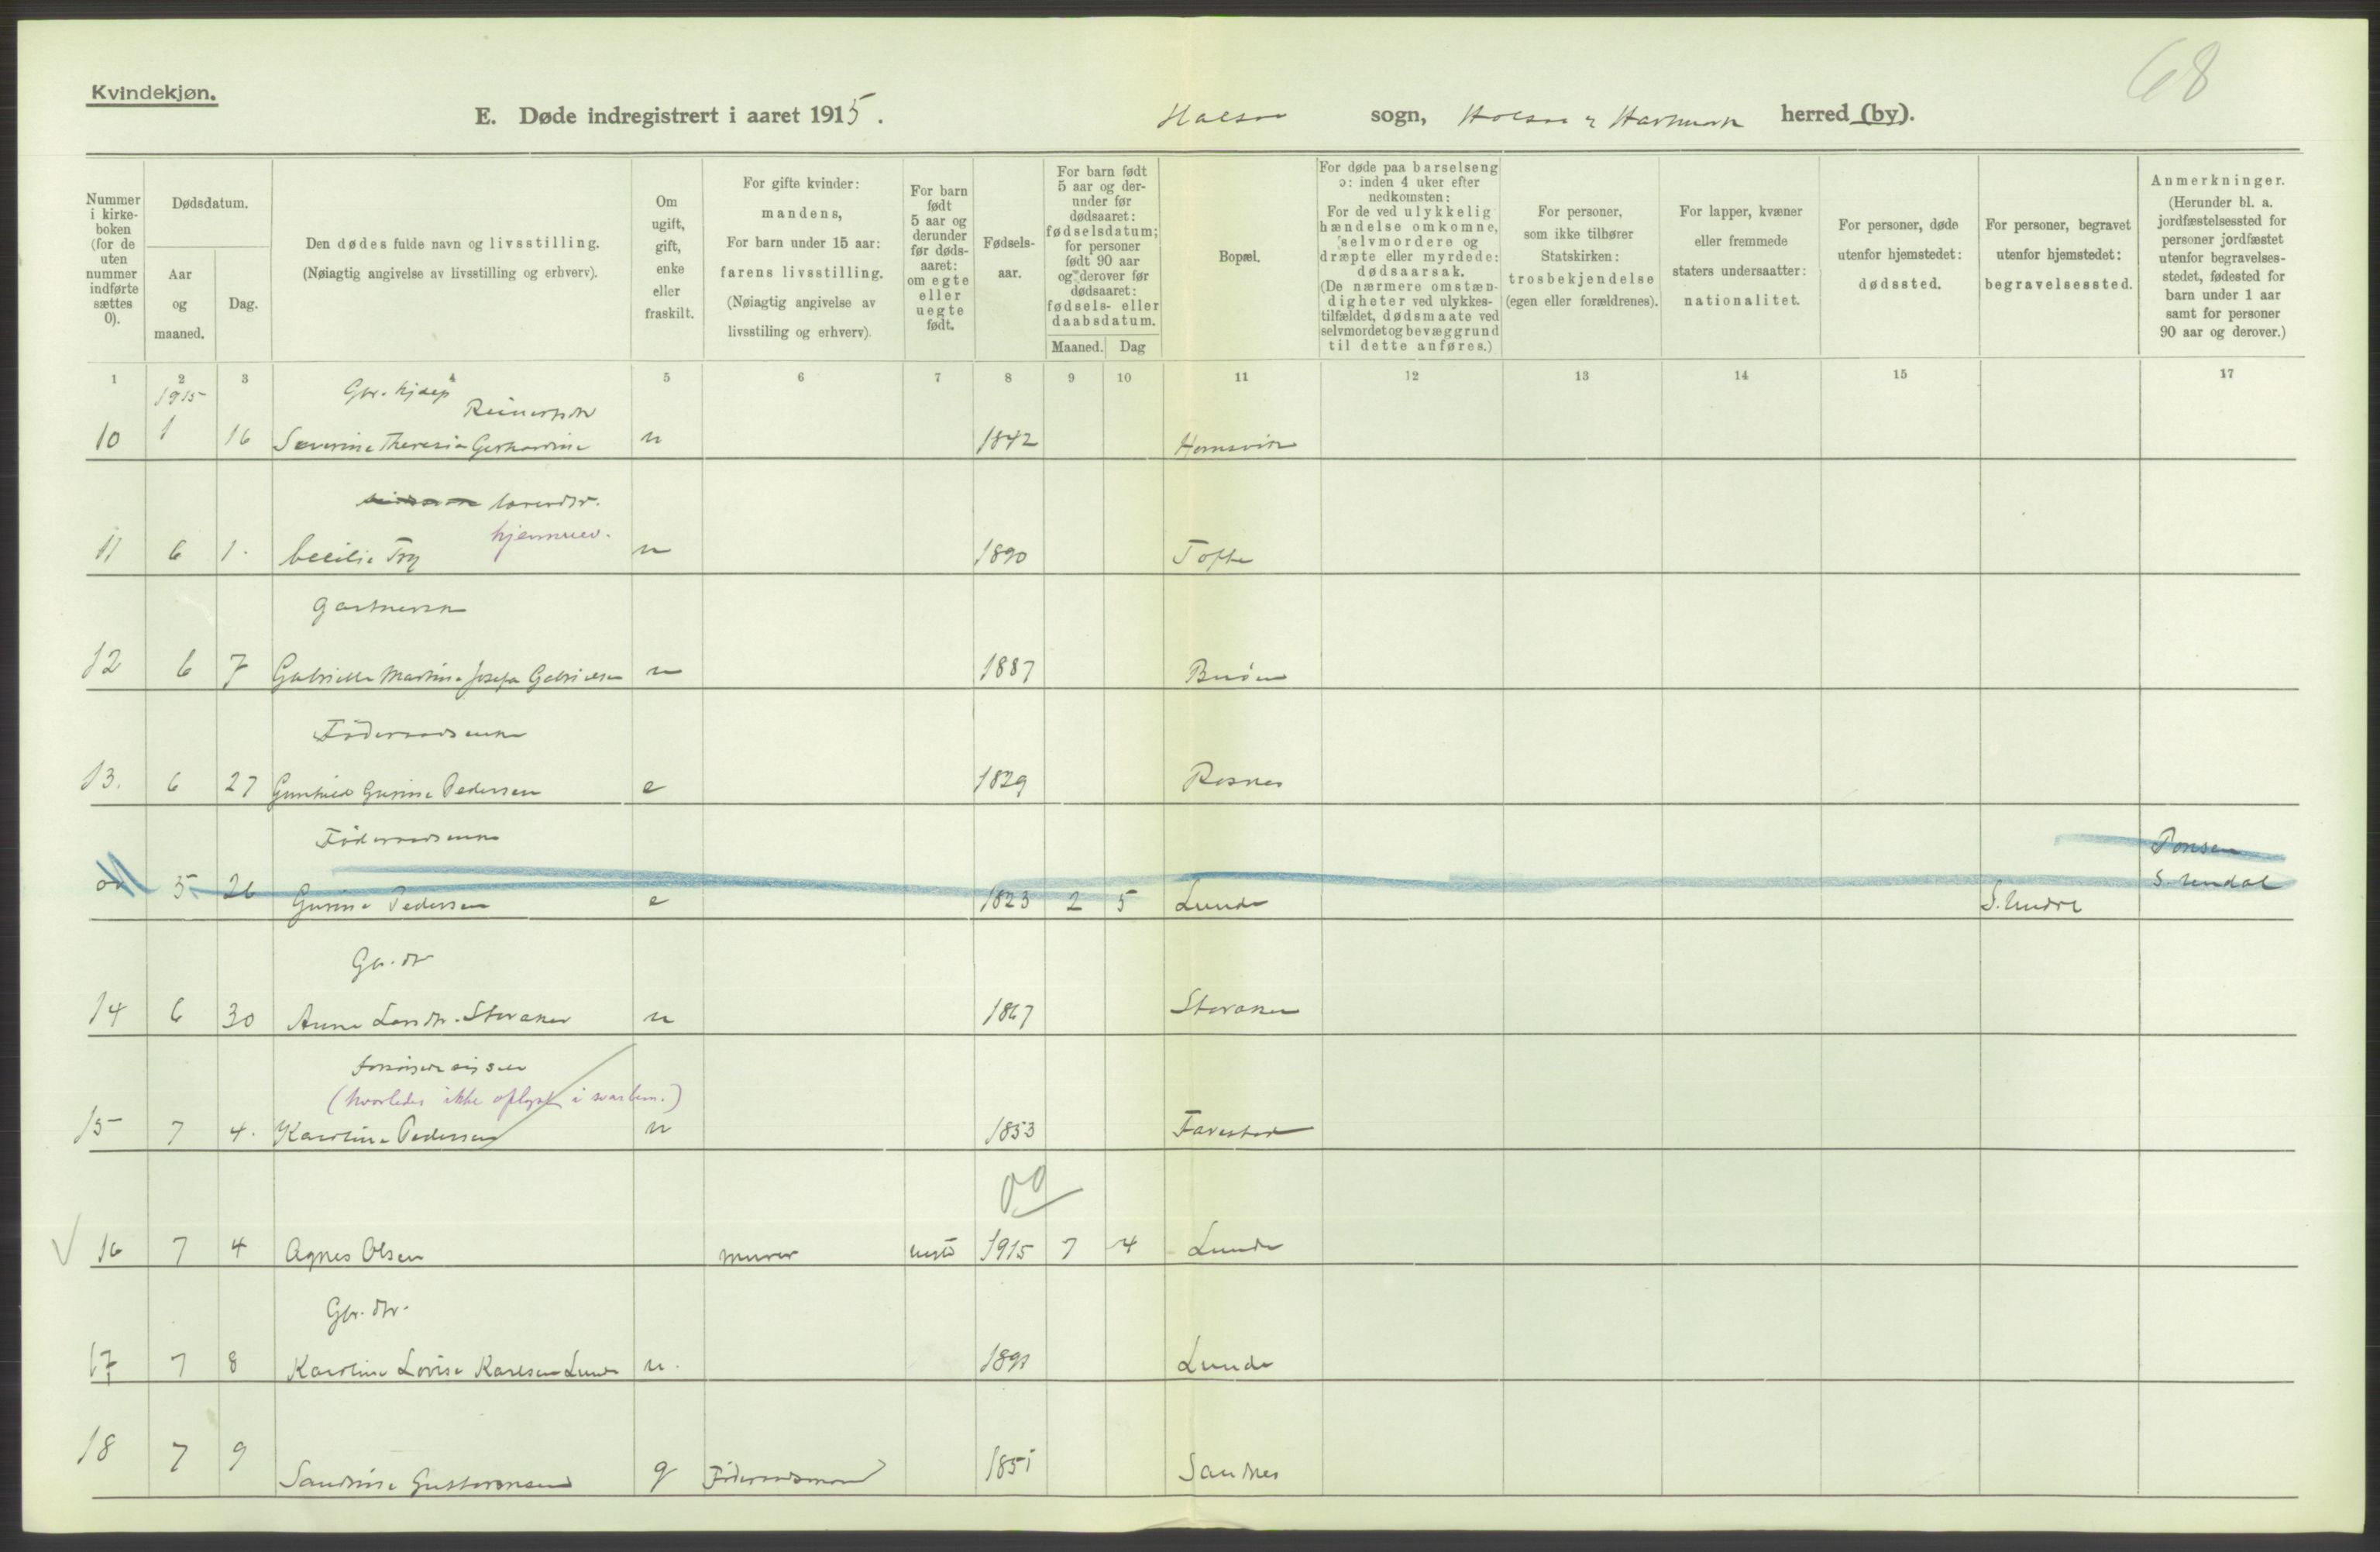 68
Kvindekjøn.
E. Døde indregistrert i aaret 1915. sogn, herred (by).
Nummer i kirke- boken (for de uten nummer indførte sættes 0).
Dødsdatum.
Aar og maaned.
Dag.
Den dødes fulde navn og livsstilling.
(Nøiagtig angivelse av livsstilling og erhverv).
Om ugift, gift, enke eller fraskilt.
For gifte kvinder: mandens,
For barn under 15 aar: farens livsstilling.
(Nøiagtig angivelse av livsstiling og erhverv).
For barn født 5 aar og derunder før døds- aaret: om egte eller uegte født.
Fødsels- aar.
For barn født 5 aar og der- under før dødsaaret: fødselsdatum; for personer født 90 aar og derover før dødsaaret: fødsels- eller daabsdatum.
Maaned. Dag
Bopæl.
For døde paa barselseng ɔ: inden 4 uker efter nedkomsten:
For de ved ulykkelig hændelse omkomne, selvmordere og dræpte eller myrdede: dødsaarsak.
(De nærmere omstæn- digheter ved ulykkes- tilfældet, dødsmaate ved selvmordet og bevæggrund til dette anføres.)
For personer, som ikke tilhører Statskirken: trosbekjendelse (egen eller forældrenes).
For lapper, kvæner eller fremmede staters undersaatter: nationalitet.
For personer, døde utenfor hjemstedet: dødssted.
For personer, begravet utenfor hjemstedet: begravelsessted.
Anmerkninger.
(Herunder bl. a. jordfæstelsessted for personer jordfæstet utenfor begravelses- stedet, fødested for barn under 1 aar samt for personer 90 aar og derover.)
1 2 3 4 5 6 7 8 9 10 11 12 13 14 15 17
1915
10 1 16 Severine Theresia Gerhardine u 1842
11 6 1. Cecilie u 1890 Tofte
12 6 7 Gabrielle Martine Josefa Gabrielsen u 1887 Buøen
Føderaadsenke
13. 6 27 Gunhild Gurine Pedersen e 1829 Rosnes
Føderaadsenke
5 26 Gurine Pedersen e 1823 2 5 Lunde
Gbr. dtr
14 6 30 Anna Larsdtr. Storaker u 1867 Storaker
(hvorledes ikke oplyst i
15 7 4. Karoline Pedersen u 1853 Farestad
16 7 4 Agnes Olsen murer 1915 7 4 Lunde
Gbr. dtr.
17 7 8 Karoline Lovise Karlsen Lunde u. Lunde
18 7 9 g Føderaadsmand 1851 Sandnes